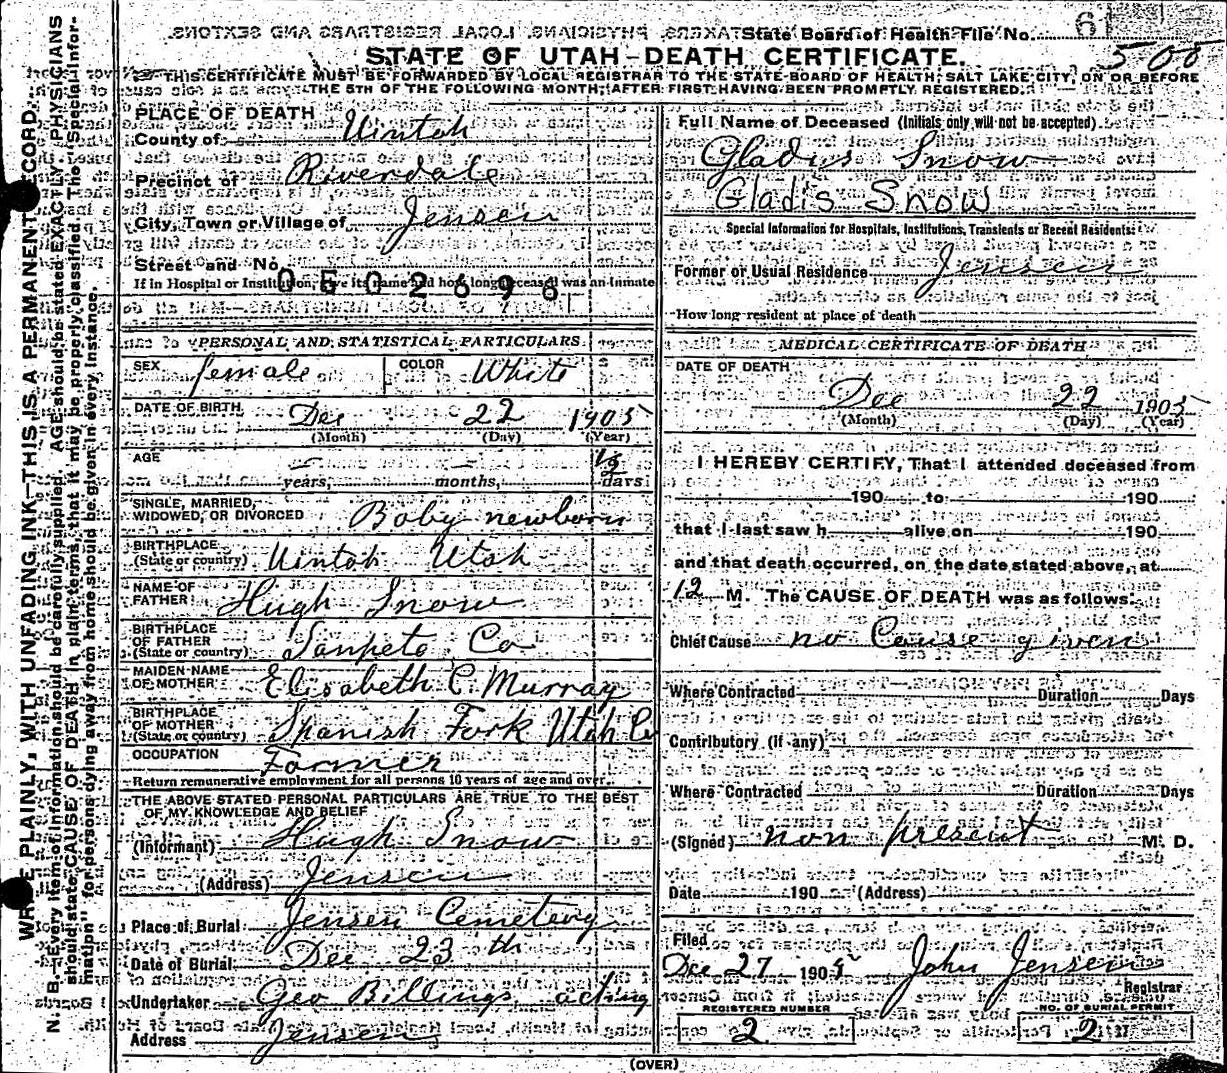 State Board of Health File No. 6
508
STATE OF UTAH—DEATH CERTIFICATE.
THIS CERTIFICATE MUST BE FORWARDED BY LOCAL REGISTRAR TO THE STATE BOARD OF HEALTH, SALT LAKE CITY, ON OR BEFORE
THE 5TH OF THE FOLLOWING MONTH, (AFTER FIRST HAVING BEEN PROMPTLY REGISTERED.)
WRITE PLAINLY, WITH UNFADING INK—THIS IS A PERMANENT RECORD.
N. B.—Every item of information should be carefully supplied. AGE should be stated EXACTLY. PHYSICIANS
should state CAUSE OF DEATH in plain terms, that it may be properly classified. The "Special Infor-
mation" for persons dying away from home should be given in every instance.
PLACE OF DEATH
County of Uintah
Precinct of Riverdale
City, Town or Village of Jensen
Street and No.
0502696
If in Hospital or Institution, give its name and how long deceased was an inmate
PERSONAL AND STATISTICAL PARTICULARS
SEX female COLOR White
DATE OF BIRTH Dec 22 1905
(Month) (Day) (Year)
AGE – years, – months, 1/2 days
SINGLE, MARRIED,
WIDOWED, OR DIVORCED Baby newborn
BIRTHPLACE
(State or country) Uintah Utah
NAME OF
FATHER Hugh Snow
BIRTHPLACE
OF FATHER
(State or country) Sanpete Co
MAIDEN NAME
OF MOTHER Elisabeth C. Murray
BIRTHPLACE
OF MOTHER
(State or country) Spanish Fork Utah Co
OCCUPATION Farmer
Return remunerative employment for all persons 10 years of age and over.
THE ABOVE STATED PERSONAL PARTICULARS ARE TRUE TO THE BEST
OF MY KNOWLEDGE AND BELIEF
(Informant) Hugh Snow
(Address) Jensen
Place of Burial Jensen Cemetery
Date of Burial Dec 23 th
Undertaker Geo Billings acting
Address Jensen
Full Name of Deceased (Initials only will not be accepted)
Gladis Snow
Gladis Snow
Special Information for Hospitals, Institutions, Transients or Recent Residents:
Former or Usual Residence Jensen
How long resident at place of death
MEDICAL CERTIFICATE OF DEATH
DATE OF DEATH
Dec 22 1905
(Month) (Day) (Year)
I HEREBY CERTIFY, That I attended deceased from
190 to 190
that I last saw h alive on 190
and that death occurred, on the date stated above, at
12 M. The CAUSE OF DEATH was as follows:
Chief Cause no Cause given
Where Contracted Duration Days
Contributory (if any)
Where Contracted Duration Days
(Signed) non present M. D.
Date 190 (Address)
Filed
Dec 27 1905 John Jensen
Registrar
REGISTERED NUMBER NO. OF BURIAL PERMIT
2 2
(OVER)